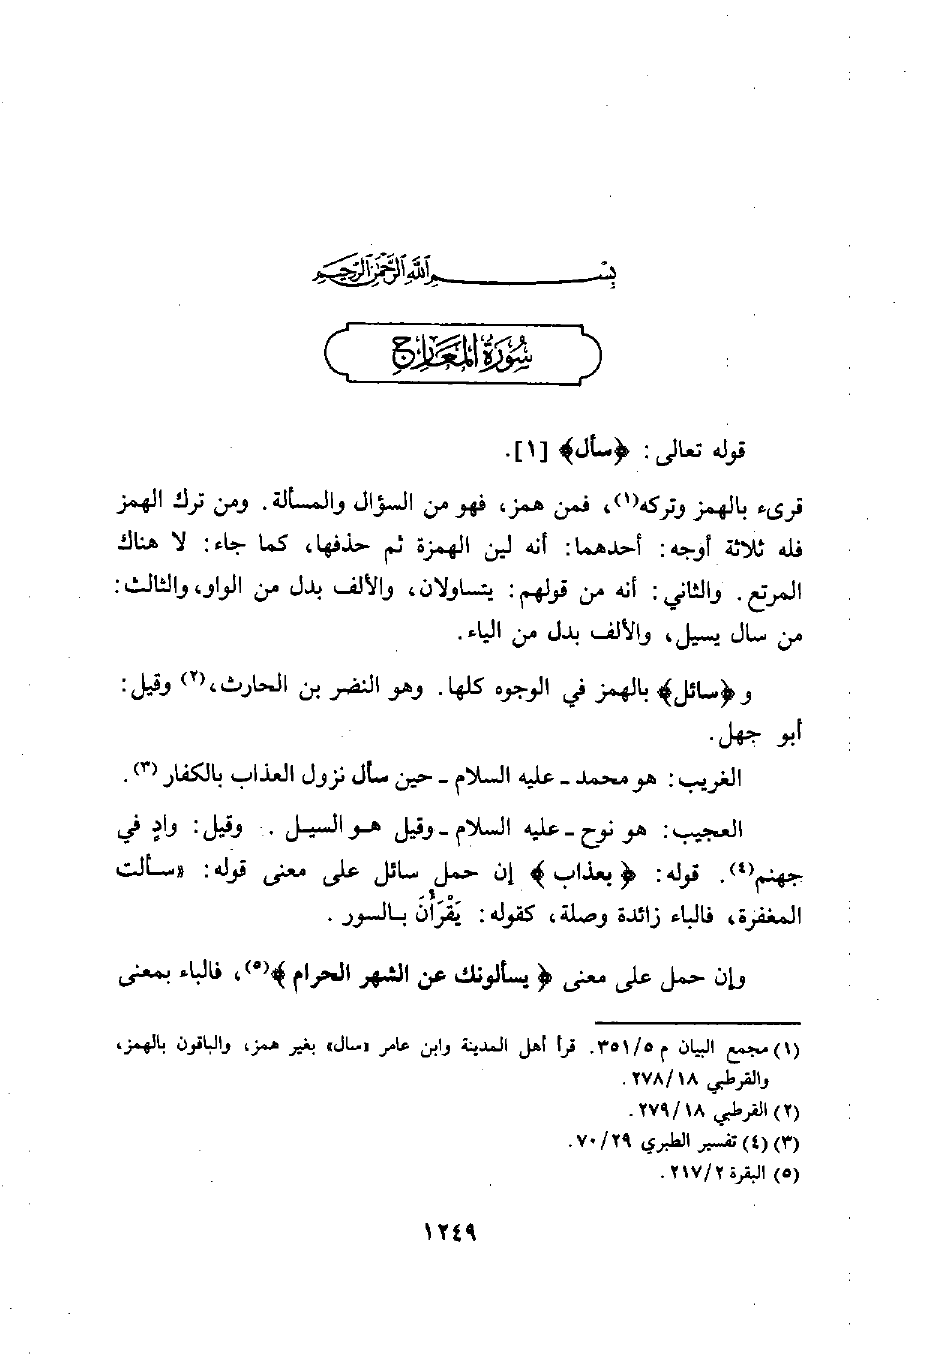 بسم الله الرحمن الرحيم
سورة المعارج
قوله تعالى: ﴿سأل﴾ [١].
قرىء بالهمز وتركه(١)، فمن همز، فهو من السؤال والمسألة. ومن ترك الهمز
فله ثلاثة أوجه: أحدهما: أنه لين الهمزة ثم حذفها، كما جاء: لا هناك
المرتع. والثاني: أنه من قولهم: يتساولان، والألف بدل من الواو، والثالث:
من سال يسيل، والألف بدل من الياء.
و ﴿سائل﴾ بالهمز في الوجوه كلها. وهو النضر بن الحارث،(٢) وقيل:
أبو جهل.
الغريب: هو محمد - عليه السلام - حين سأل نزول العذاب بالكفار(٣).
العجيب: هو نوح - عليه السلام - وقيل هو السيل. وقيل: وادٍ في
جهنم(٤). قوله: ﴿بعذاب﴾ إن حمل سائل على معنى قوله: «سألت
المغفرة، فالباء زائدة وصلة، كقوله: يَقْرَأْنَ بالسور.
وإن حمل على معنى ﴿يسألونك عن الشهر الحرام﴾(٥)، فالباء بمعنى
(١) مجمع البيان م ٣٥١/٥. قرأ أهل المدينة وابن عامر «سال» بغير همز، والباقون بالهمز،
والقرطبي ٢٧٨/١٨.
(٢) القرطبي ٢٧٩/١٨.
(٣) (٤) تفسير الطبري ٧٠/٢٩.
(٥) البقرة ٢١٧/٢.
١٢٤٩